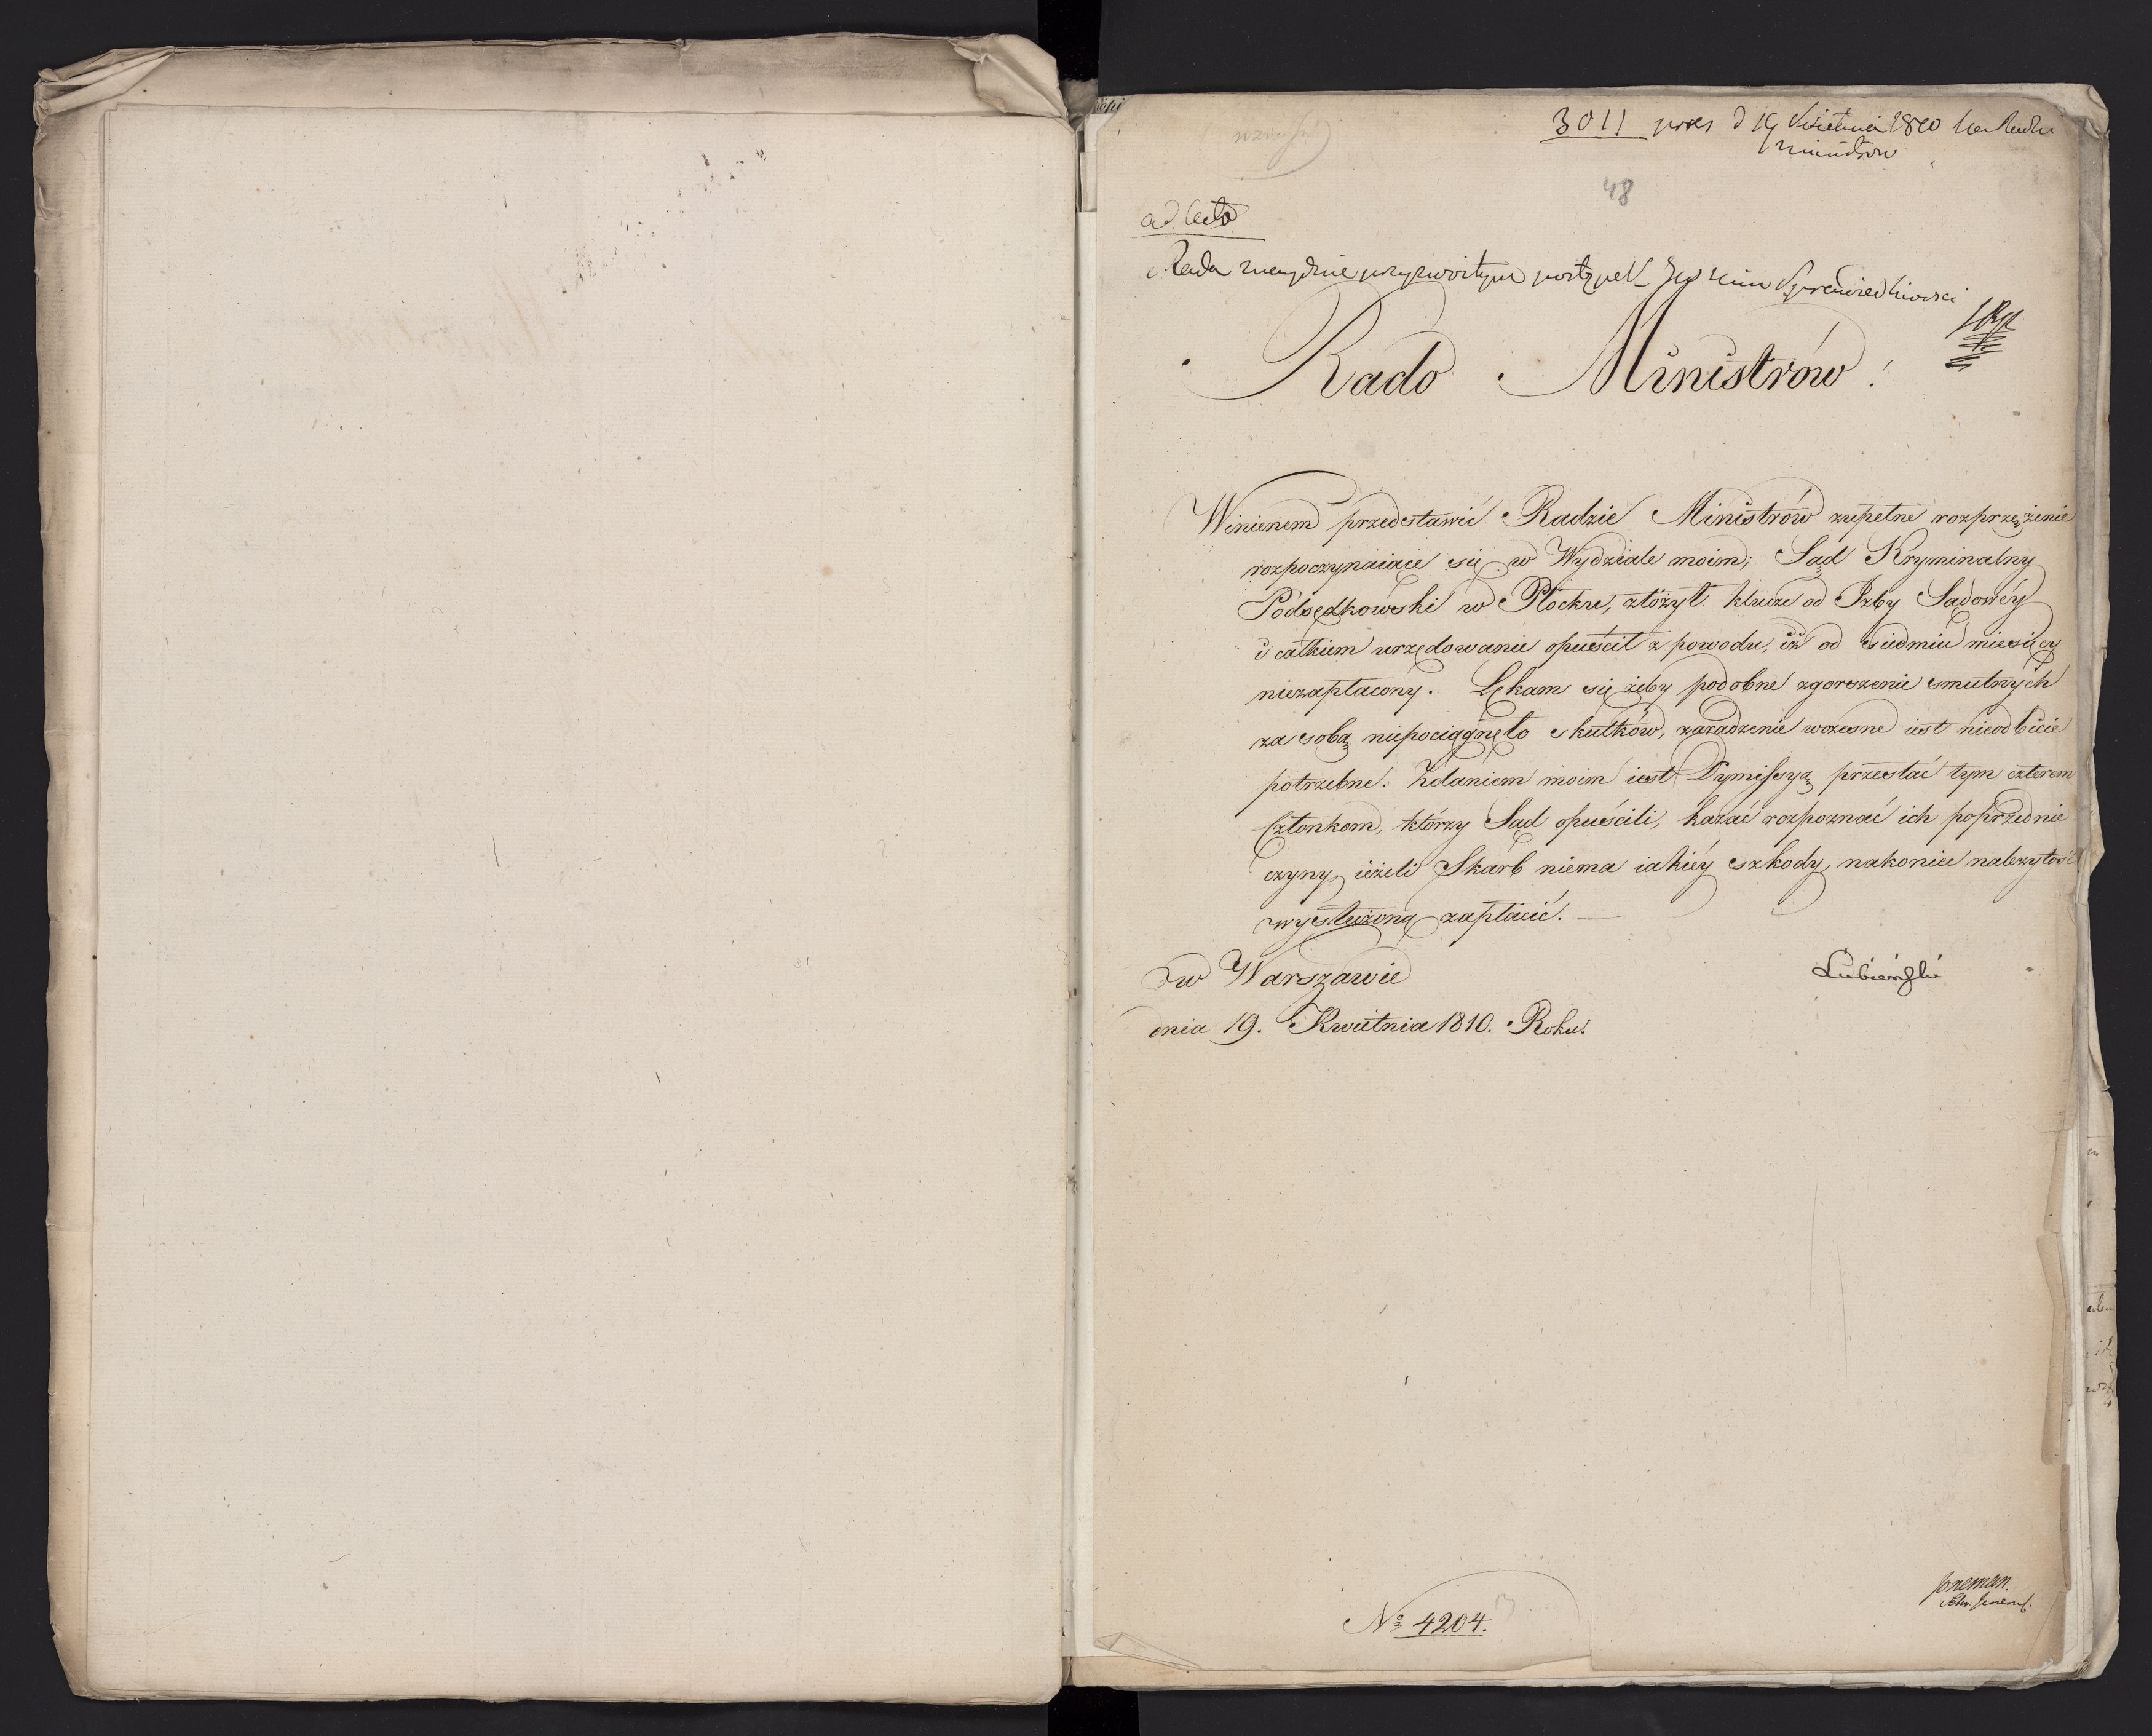 3011 pres d 19 Kwietnia 1810 
Ministrow
48
ad acta
Rada znayduie przyzwoitym postępek JW Min Sprawiedliwosci
Rado Ministrów!
Winienem przedstawić Radzie Ministrów zupełne rozprzężenie
rozpoczynaiące się w Wydziale moim; Sąd Kryminalny
Podsędkowski w Płocku, złożył klucze od Izby Sądowéy
i całkiem urzędowanie opuścił z powodu, iż od siedmiu miesięcy
niezapłacony. Lękam się żeby podobne zgorszenie smutnych
za sobą niepociągnęło skutków, zaradzenie wczesne iest nieodbicie
potrzebne. Zdaniem moim iest Dymissyą przesłać tym czterem
Członkom, którzy Sąd opuścili, kazać rozpoznać ich poprzednie
czyny, ieżeli Skarb niema iakiéy szkody, nakoniec należytość
wysłużoną zapłacić. —
w Warszawie
Lubieński
dnia 19. Kwietnia 1810. Roku.
No 4204.